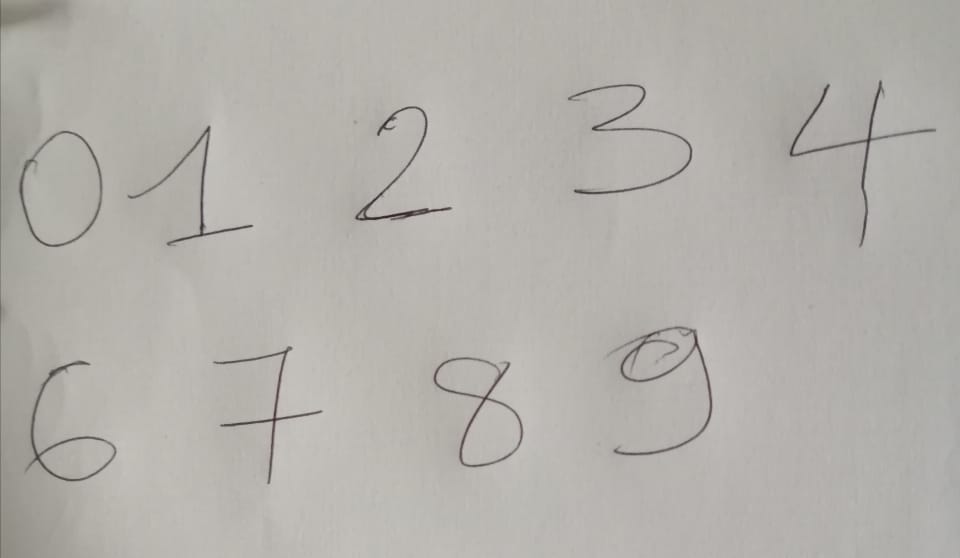 0 1 2 3 4
6 7 8 9